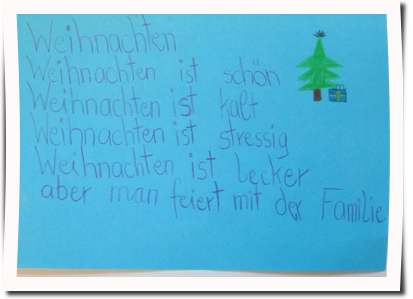 Weihnachten
Weihnachten ist schön
Weihnachten ist kalt
Weihnachten ist stressig
Weihnachten ist Lecker
aber man feiert mit der Familie